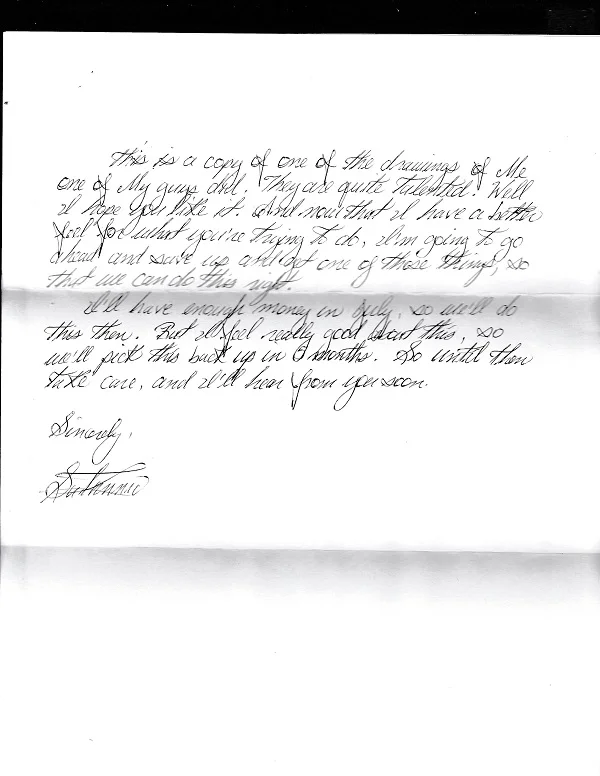 This is a copy of one of the drawings of Me
one of My guys did. They are quite talented. Well
I hope you like it. And now that I have a better
feel for what you're trying to do, I'm going to go
ahead and save up and get one of those things, so
that we can do this right.
I'll have enough money in July, so we'll do
this then. But I feel really good about this, so
we'll pick this back up in 6 months. So until then
take care, and I'll hear from you soon.
Sincerely,